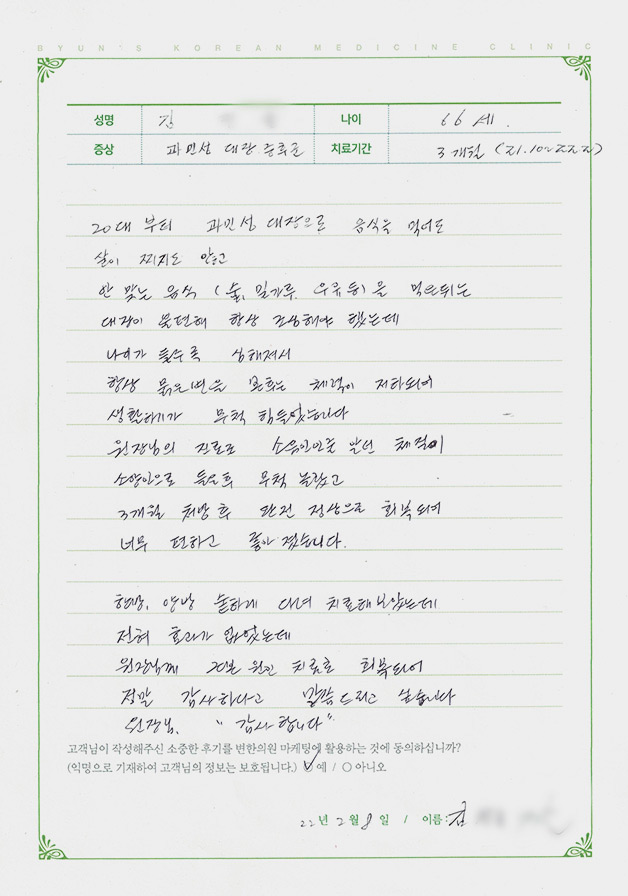 BYUN'S KOREAN MEDICINE CLINIC
성명 김 나이 66세.
증상 과민성 대장 증후군 치료기간 3개월 (21.10~22.2)
20대 부터 과민성 대장으로 음식을 먹어도
살이 찌지도 않고
안 맞는 음식 (술, 밀가루, 우유 등)을 먹은뒤는
대장이 불편해 항상 조심해야 했는데
나이가 들수록 심해져서
항상 묽은변을 본후는 체력이 저하되어
생활하기가 무척 힘들었습니다
원장님의 진료로 소음인인줄 알던 체질이
소양인으로 들은후 무척 놀랐고
3개월 처방 후 완전 정상으로 회복되어
너무 편하고 좋아 졌습니다.
한방, 양방 숱하게 다녀 치료해보았는데
전혀 효과가 없었는데
원장님께 근본 원인 치료로 회복되어
정말 감사하다고 말씀드리고 싶습니다
원장님, "감사합니다"
고객님이 작성해주신 소중한 후기를 변한의원 마케팅에 활용하는 것에 동의하십니까?
(익명으로 기재하여 고객님의 정보는 보호됩니다.) ✓예 / ○아니오
22년 2월 8일 / 이름: 김